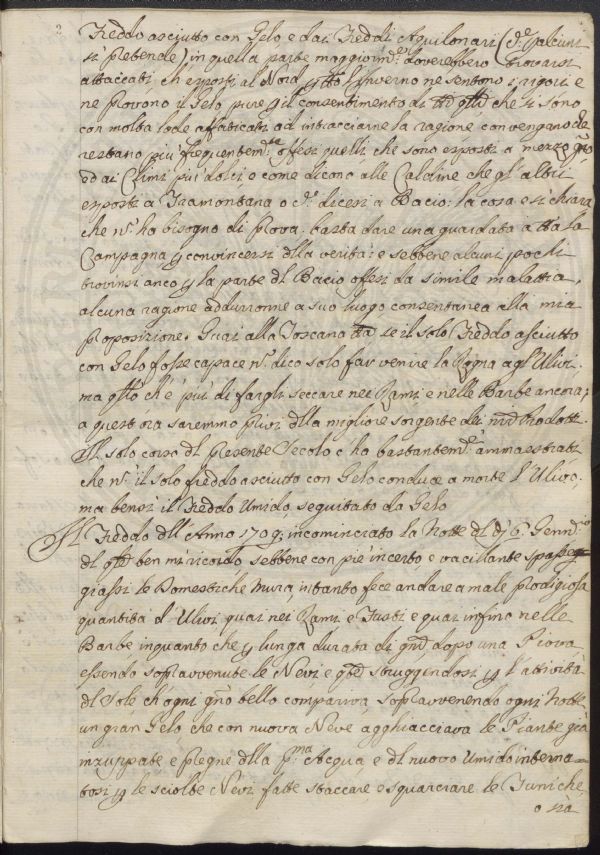 2
Freddo asciutto con Gelo e dai Freddi Aquilonari (c.e d'alcuni
si pretende) in quella parte maggiorm.te doverebbero trovarsi
attaccati ch'esposti al Nord p tto l'Inverno ne sentono i rigori e
ne provono il Gelo pure p il consentimento di tti qtti che si sono
con molta lode affaticati ad intracciarne la ragione convengano che
restano più frequentem.te offesi quelli che sono esposti a mezzo gno
ed ai Climi più dolci o come dicono alle Caldine che gl'altri
esposti a Tramontana o c.e dicesi a Bacio: la cosa e sì chiara
che n. ha bisogno di prova: basta dare una guardata a tta la
Campagna p convincersi dlla verita: e sebbene alcuni pochi
trovinsi anco p la parte dl Bacio offesi da simile malattia,
alcuna ragione addurronne a suo luogo consentanea alla mia
proposizione. Guai alla Toscana tta se il solo Freddo asciutto
con Gelo fosse capace n. dico solo far venire la Rogna agl'Ulivi
ma qllo ch'e più di fargli seccare nei Rami e nelle Barbe ancora;
a quest'ora saremmo privi dlla migliore sorgente dei nri Prodotti.
Il solo corso dl presente Secolo c'ha bastantem.te ammaestrati
che n. il solo freddo asciutto con Gelo conduce a morte l'Ulivo,
ma bensì il Freddo Umido, seguitato da Gelo
Il Freddo dll'Anno 1709 incominciato la Notte dl dj 6 Genn.o
dl qle ben mi ricordo sebbene con piè incerto e vacillante passeg-
giassi le Domestiche Mura intanto fece andare a male prodigiosa
quantità d'Ulivi quai nei Rami e Fusti e quai infino nelle
Barbe inquanto che p lunga durata di gni dopo una Piova
essendo sopravvenute le Nevi e qste struggendosi p l'attività
dl Sole ch'ogni gno bello compariva sopravvenendo ogni Notte
un gran Gelo che con nuova Neve agghiacciava le Piante già
inzuppate e pregne dlla p.ma Acqua, e dl nuovo Umido interna-
tosi p le sciolte Nevi fatte staccare e squarciare le Tuniche,
o sia